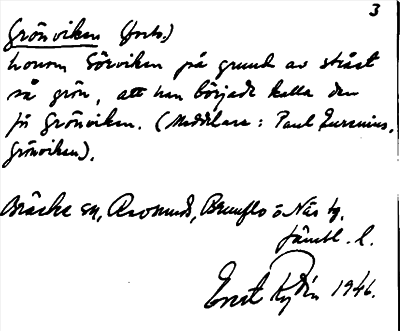 3
Grönviken (forts.)
honom Sörviken på grund av
så grön, att han började kalla den
för Grönviken. (Meddelare: Paul
Grönviken).
Bräcke sn, Brunflo o. Näs tg.
Jämtl. l.
Ernst 1946.